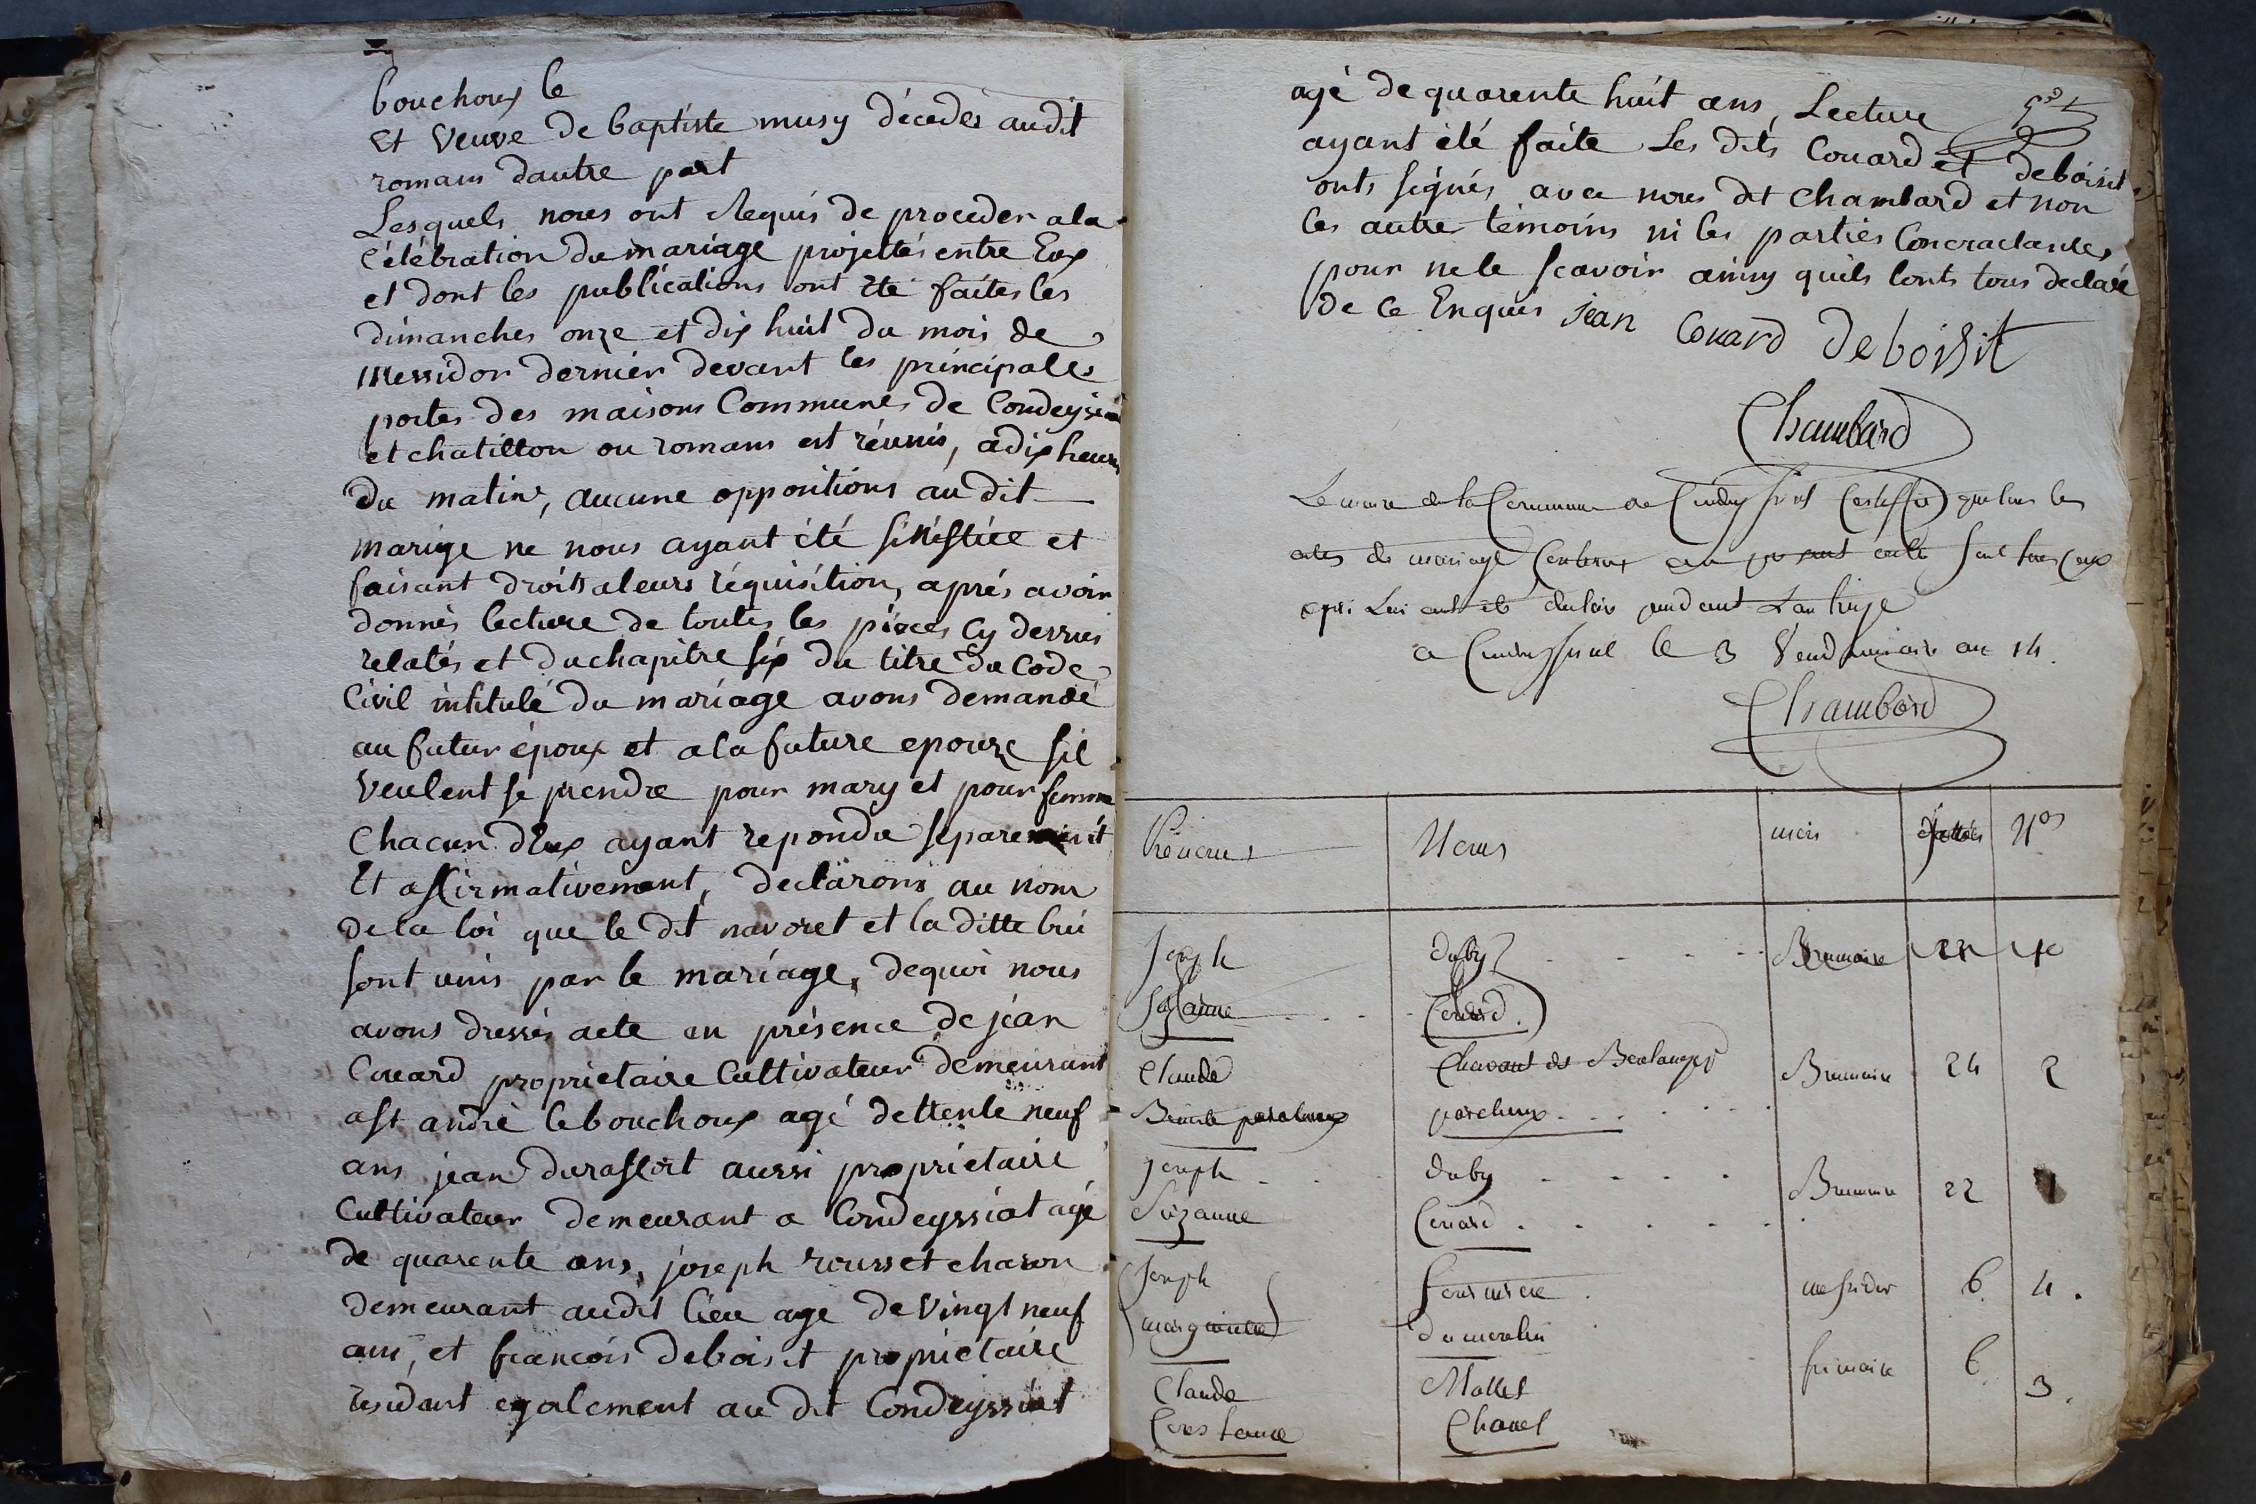 bouchoux le
Et veuve de baptiste musy décédés audit
romans dautre part
Lesquels nous ont Requis de proceder ala
Célébration du mariage projettés entre Eux
et dont les publications ont eté faites les
dimanches onze et dix huit du mois de
Messidor dernier devant les principalles
portes des maisons Communes de Condeyssiat
et chatillon ou romans est réunis, a dix heures
du matin, aucune oppositions au dit
marige ne nous ayant été sinifiée et
faisant droits aleurs réquisition, aprés avoir
donnés lecture de toutes les pieces Cy dessus
relatés et duchapitre six du titre du Code
Civil intitulé du mariage avons demandé
au futur époux et ala future epouze sil
veulent se prendre pour mary et pour femme
chacun d'Eux ayant repondu separement
Et affirmativement, declarons au nom
de la loi que le dit navoret et la ditte
sont unis par le mariage, dequoi nous
avons dressés acte en présence de jéan
Couard proprietaire Cultivateur demeurant
a st andrè lebouchoux agé dettente neuf
ans jean durafort aussi proprietaire
Cultivateur demeurant a Condeyssiat agé
de quarente ans, joseph rousset charon
demeurant audit lieu age de vingt neuf
ans, et françois deboisit proprietaire
residant egalement au dit Condeyssiat
agé de quarente huit ans, Lecture
ayant été faite Les dits Couard et deboisit
onts signés avec nous dit Chambard et non
les autre témoins ni les parties
pour ne le scavoir ainsy quils lonts tous declaré
de ce Enquis jean Couard deboisit
Chambard
Le maire de la Commune de Certiffie que tous les
actes de mariage au present sont tous ceux
qui Lui ont été pendant Lan treize
a le 3 Vendemiaire an 14.
Chambard
Prénoms Noms mois Nos
Joseph duby Brumaire
Suzanne Couard
Claude Brumaire 24 2
Joseph duby Brumaire 22
Suzanne Couard
Joseph messidor 6 4.
dumoulin
Claude Mallet frimaire 6 3.
Constance Chanel